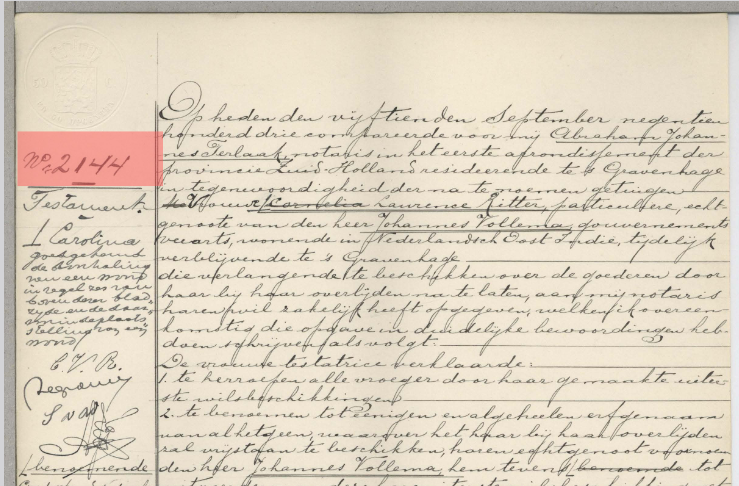 Op heden den vijftienden September negentien
honderd drie compareerde voor mij Abraham Johan-
nes Terlaak, notaris in het eerste arrondissement der
provincie Zuid-Holland resideerende te 's Gravenhage
in tegenwoordigheid der na te noemen getuigen
Vrouwe Cornelia Laurence Ritter, particuliere, echt-
genoote van den heer Johannes Vollema, gouvernements
veearts, wonende in Nederlandsch Oost-Indie, tijdelijk
verblijvende te 's Gravenhage
die verlangende te beschikken over de goederen door
haar bij haar overlijden na te laten, aan mij notaris
haren wil zakelijk heeft opgegeven, welken ik overeen-
komstig die opgave in duidelijke bewoordingen heb
doen schrijven als volgt:
De vrouwe testatrice verklaarde:
1. te herroepen alle vroeger door haar gemaakte uiter-
ste wilsbeschikkingen
2. te benoemen tot eenigen en algeheelen erfgenaam
van al hetgeen, waarover het haar bij haar overlijden
zal vrijstaan te beschikken, haren echtgenoot voornoem
den heer Johannes Vollema, hem tevens benoemde tot
No. 2144
Testament.
Carolina
goedgekeurd
de doorhaling
van een woord
in regel zes van
boven dezer blad-
zyde en de daar-
voor in de plaats
stelling van een
woord
C.V.R.
benoemende